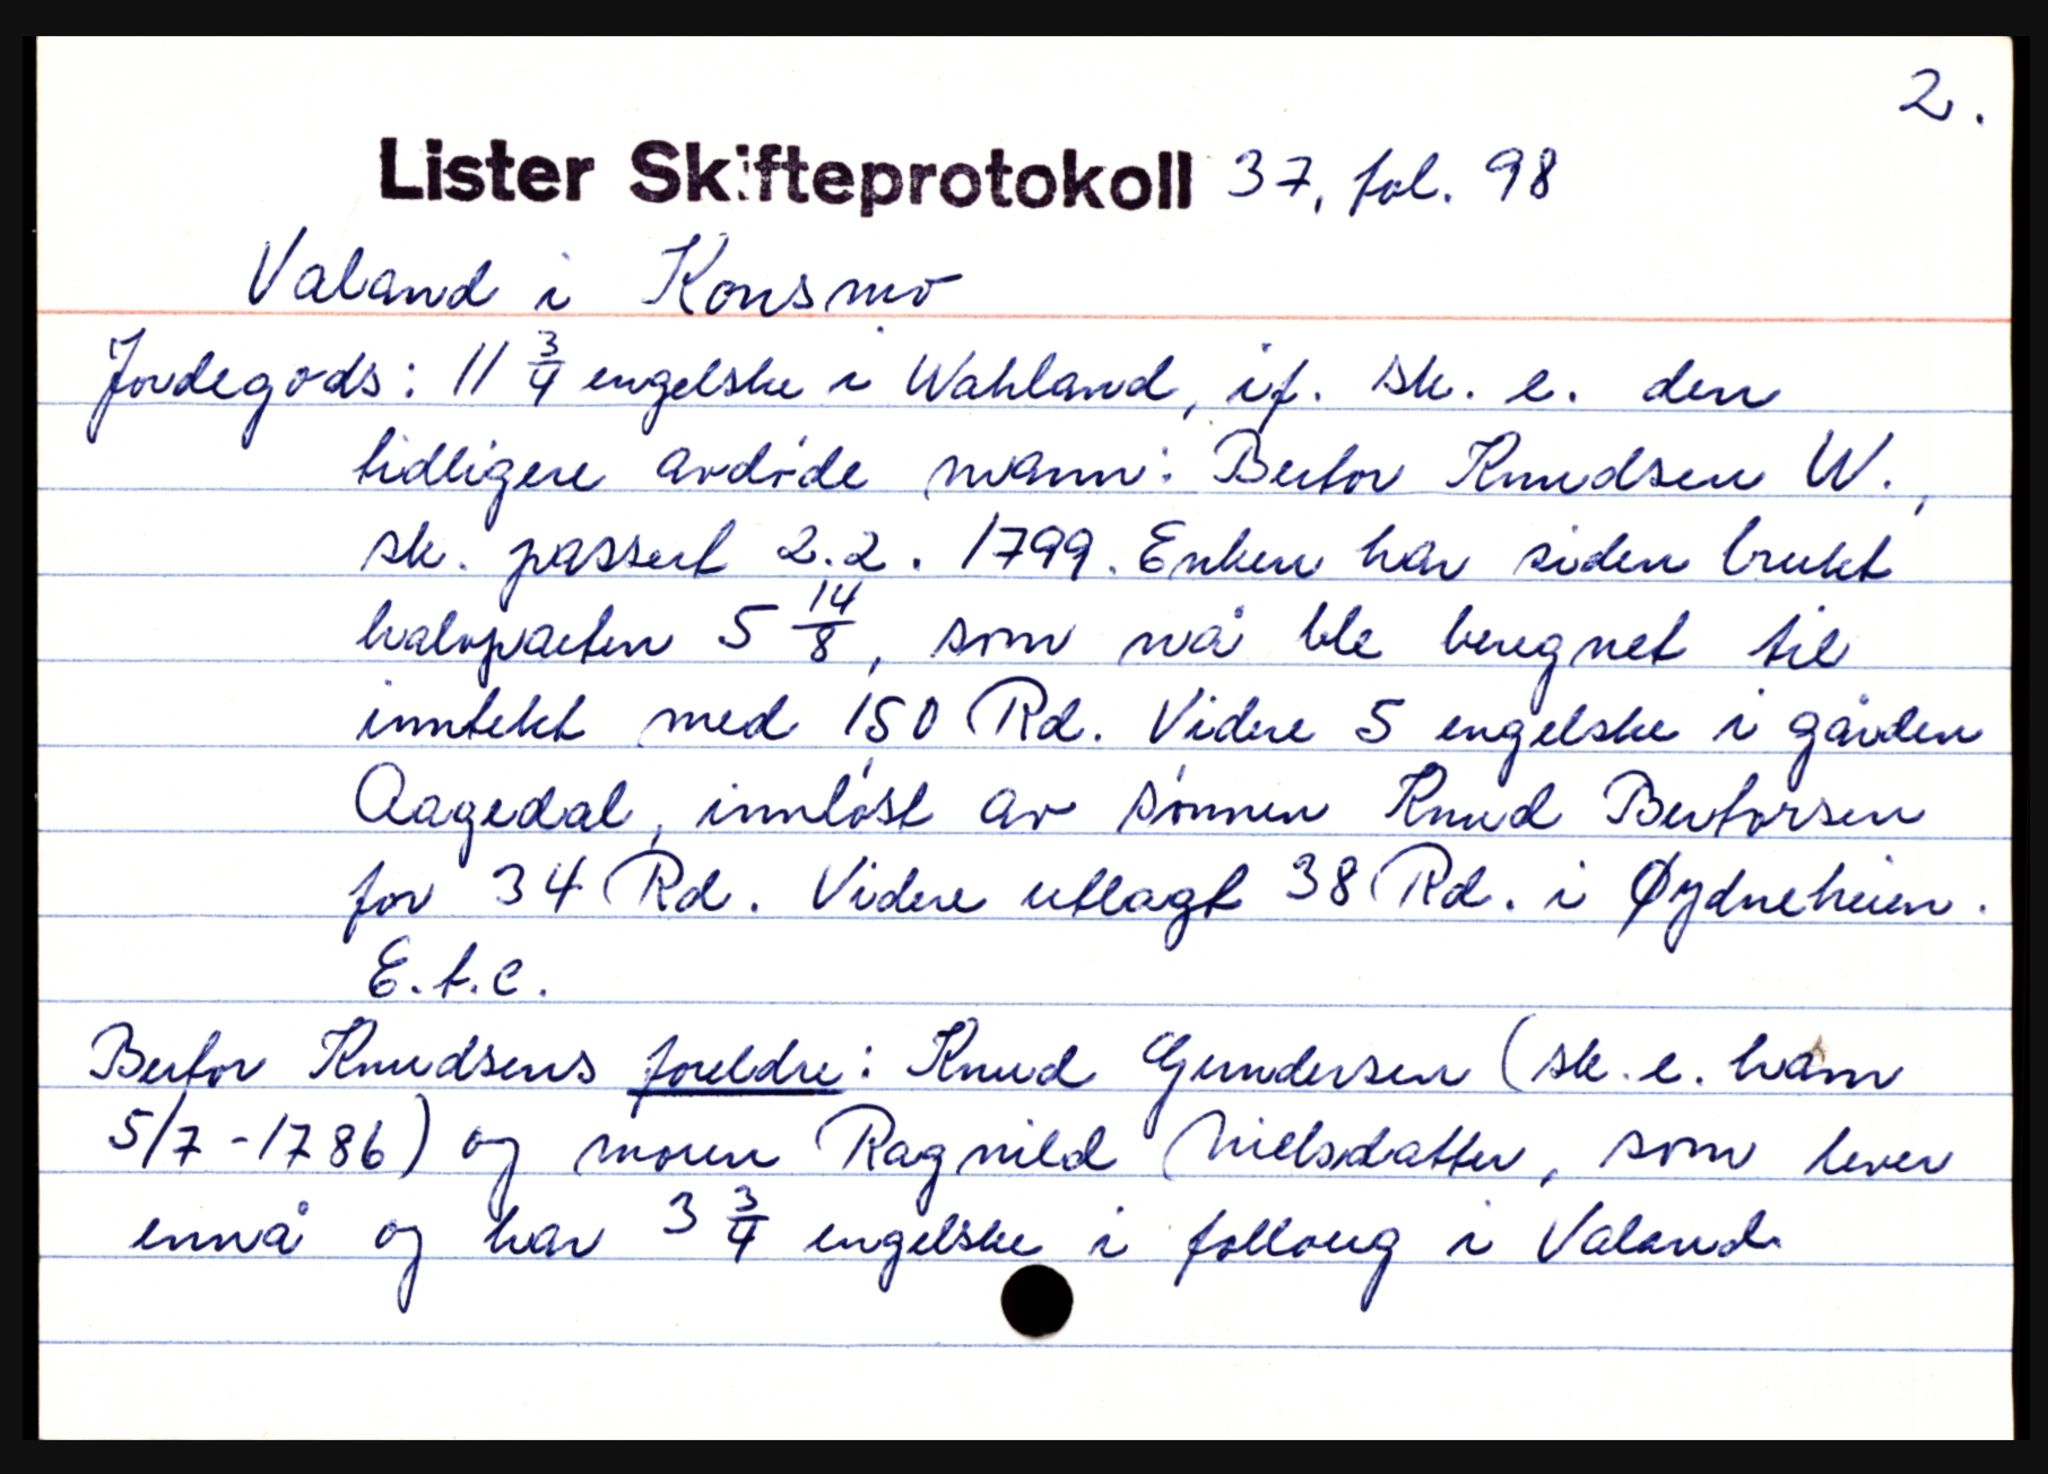 2.
Lister Skifteprotokoll 37, fol. 98
Valand i Konsmo
Jordegods: 11 3/4 engelske i Wahland, if. sk. e. den
tidligere avdøde mann: Bertor Knudsen W.,
sk. passert 2.2. 1799. Enken har siden brukt
halvparten 5 14/8, som nå ble beregnet til
inntekt med 150 Rd. Videre 5 engelske i gården
Aagedal, innløst av sønnen Knud Bertorsen
for 34 Rd. Videre utlagt 38 Rd. i Øydneheien.
E.t.c.
Bertor Knudsens foreldre: Knud Gundersen (sk. e. ham
5/7-1786) og moren Ragnild Nielsdatter, som lever
ennå og har 3 3/4 engelske i folloug i Valand.